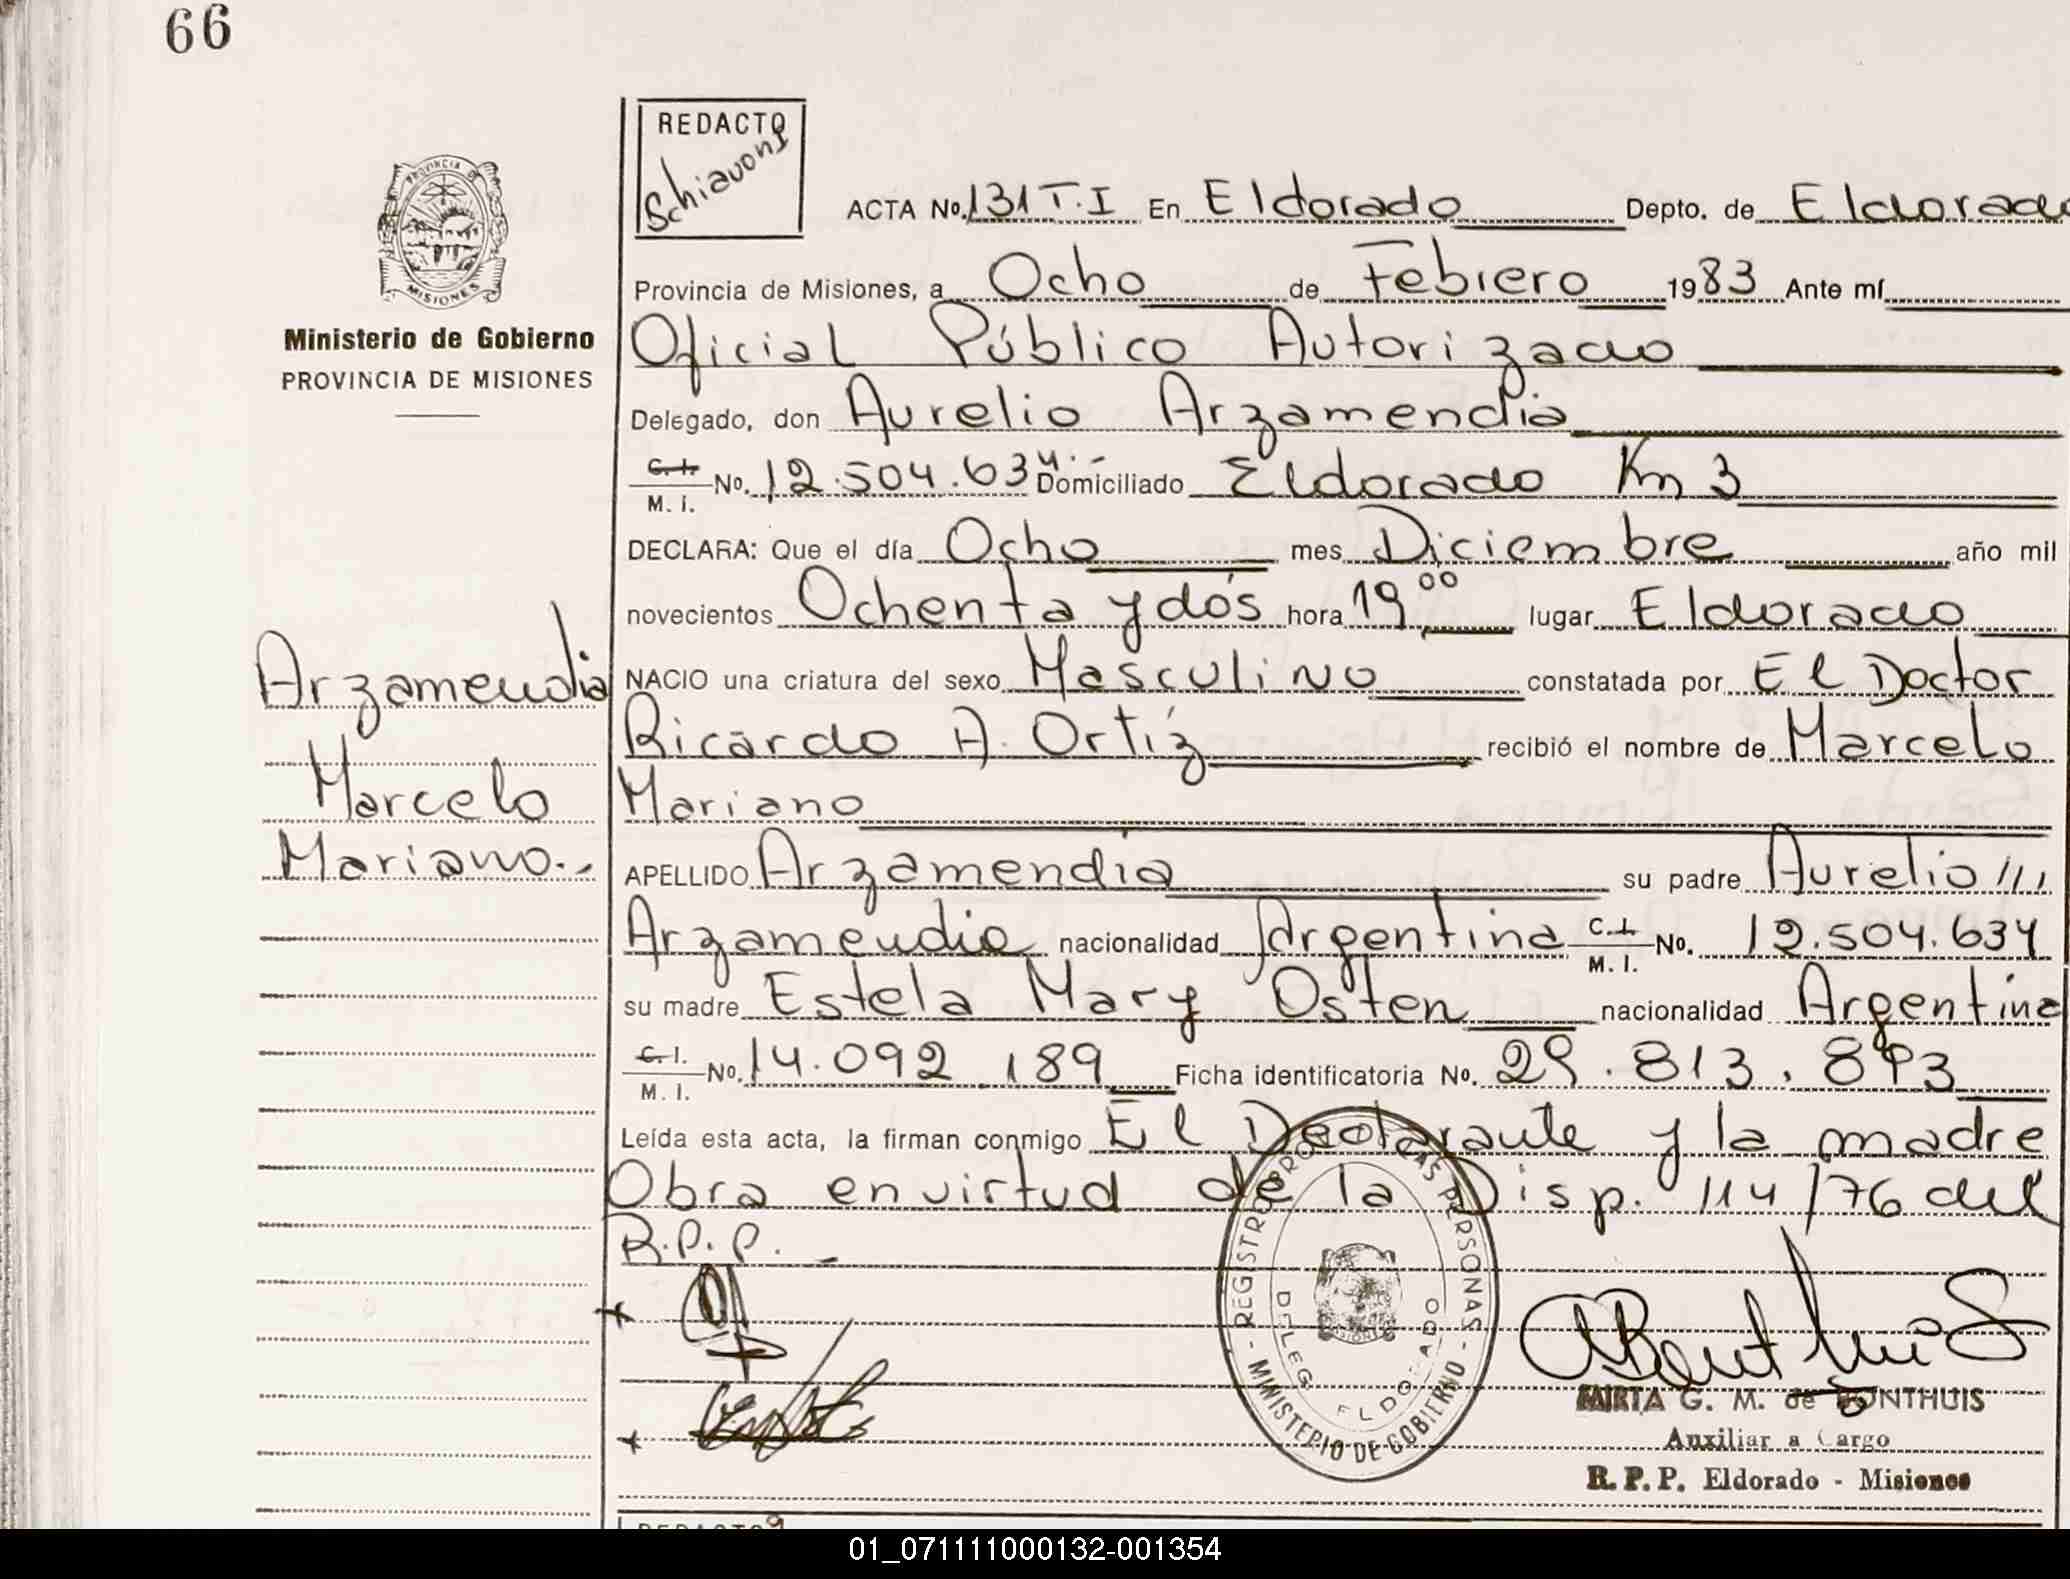 66
REDACTO
Schiavoni
PROVINCIA DE
MISIONES
Ministerio de Gobierno
PROVINCIA DE MISIONES
ACTA No. 131 T.I En Eldorado Depto. de Eldorado
Provincia de Misiones, a Ocho de Febrero 1983 Ante mí
Oficial Público Autorizado
Delegado, don Aurelio Arzamendia
C.I. M. I. No. 12.504.634.- Domiciliado Eldorado Km 3
DECLARA: Que el día Ocho mes Diciembre año mil
novecientos Ochenta y dós hora 19,00 lugar Eldorado
NACIO una criatura del sexo Masculino constatada por El Doctor
Ricardo A. Ortíz recibió el nombre de Marcelo
Mariano
APELLIDO Arzamendia su padre Aurelio ///
Arzamendia nacionalidad Argentina C.I. M. I. No. 12.504.634
su madre Estela Mary Osten nacionalidad Argentina
C.I. M. I. No. 14.092.189 Ficha identificatoria No. 29.813.893
Leída esta acta, la firman conmigo El Declarante y la madre
Obra en virtud de la Disp. 114/76 del
R.P.P. -
Arzamendia
Marcelo
Mariano.-
- REGISTRO PROV. DE LAS PERSONAS -
MINISTERIO DE GOBIERNO
DELEG. ELDORADO
MIRTA G. M. de BONTHUIS
Auxiliar a Cargo
R. P. P. Eldorado - Misiones
REDACTO
01_071111000132-001354